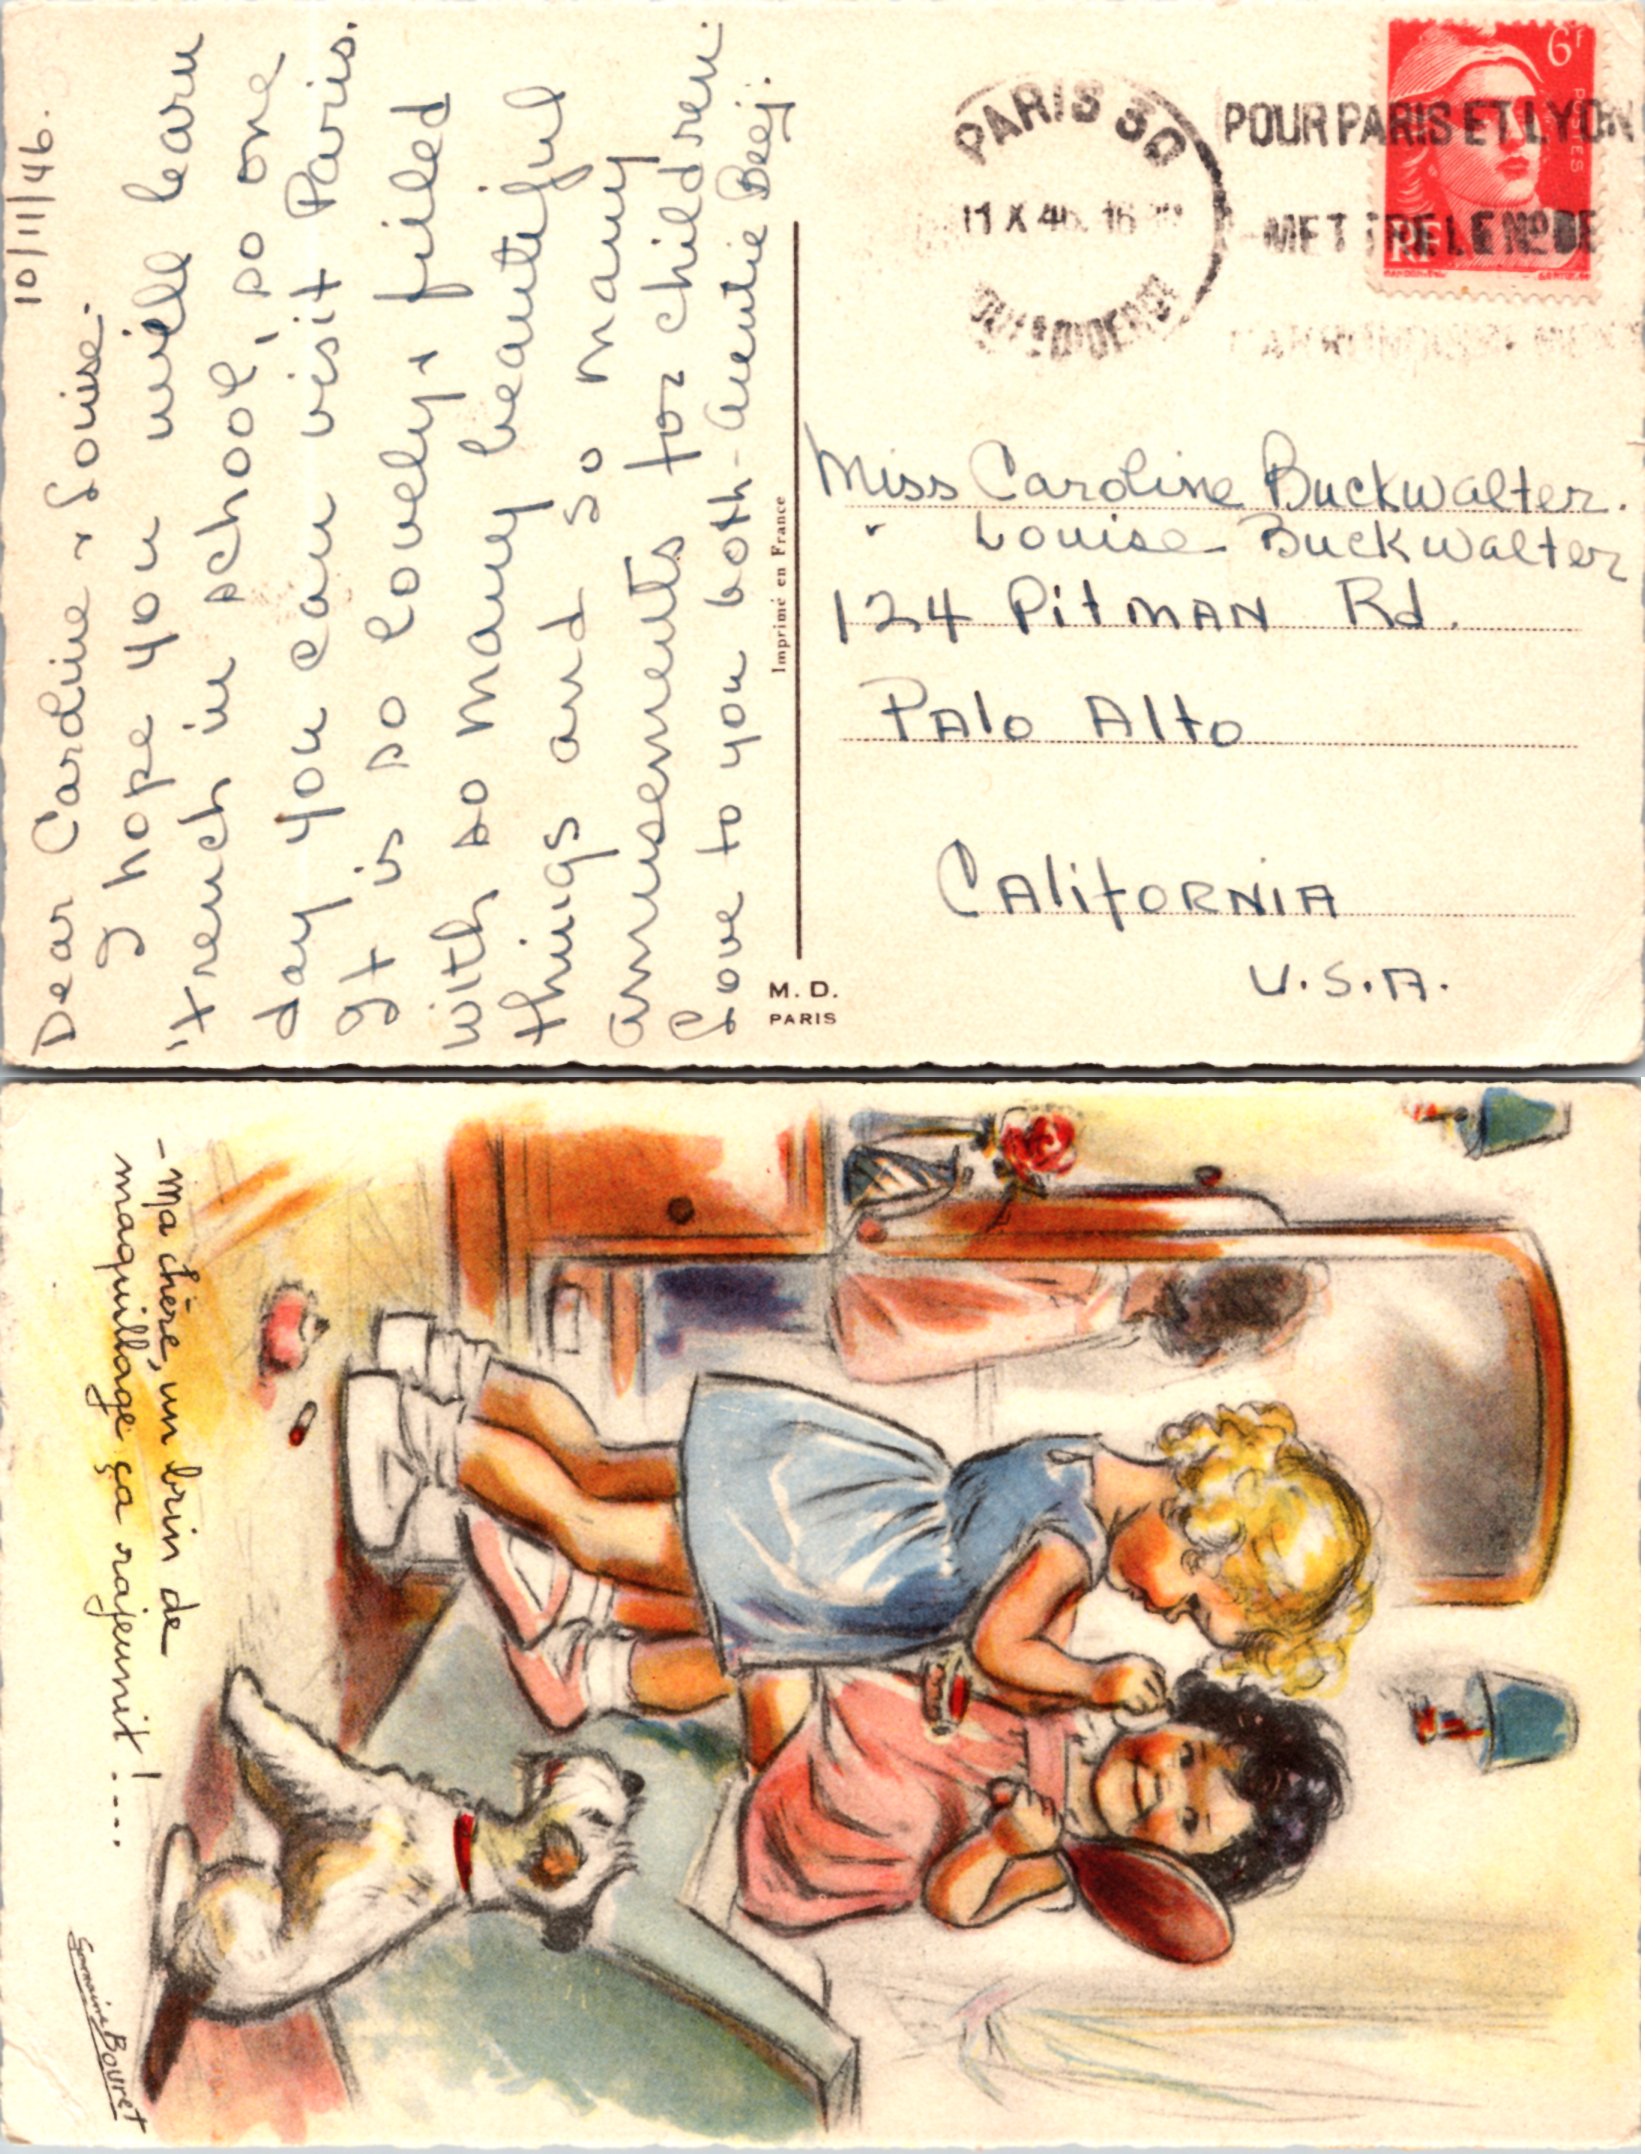 10/11/46.
Dear Caroline & Louise.
I hope you will learn
"French in school", so one
day you can visit Paris.
It is so lovely & filled
with so many beautiful
things and so many
amusements for children.
Love to you both - Auntie Beej.
Imprimé en France
M. D.
PARIS
PARIS 50
11 X 46. 16
POUR PARIS ET LYON
METTRE LE No DE
6f
POSTES
RF
Miss Caroline Buckwalter.
" Louise Buckwalter
124 PitMAN Rd.
PAlo Alto
CAlifORNIA
U.S.A.
- Ma chère, un brin de
maquillage ça rajeunit !...
Germaine Bouret